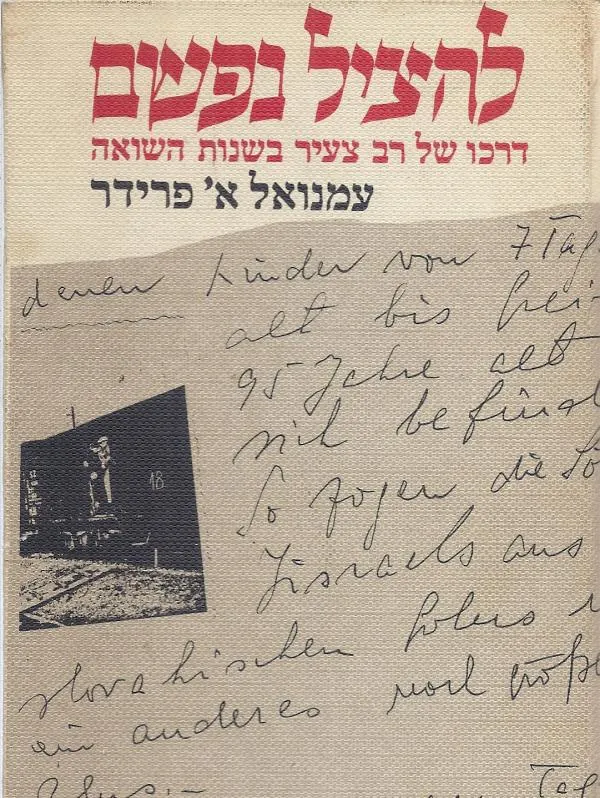 להציל נפשם
דרכו של רב צעיר בשנות השואה
עמנואל א' פרידר
denen Kinder von 7 Tag
alt bis
95 Jahre alt
sich befind
18
So zogen die Sö
Jisraels aus
slovakischen Golus
ein anderes noch größe
Tag